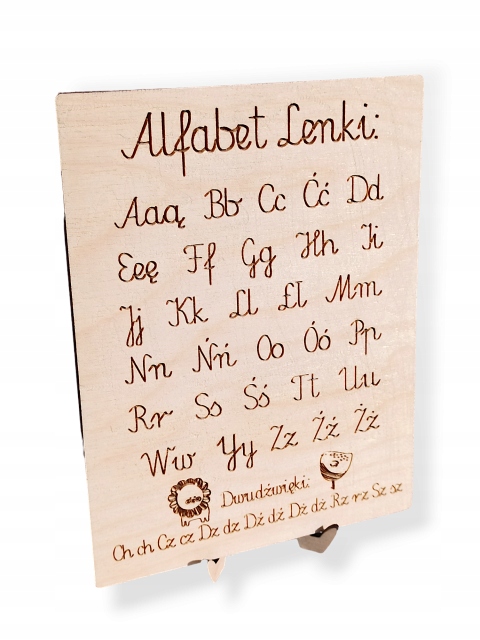 Alfabet Lenki:
Aaą Bb Cc Ćć Dd
Eeę Ff Gg Hh Ii
Jj Kk Ll Łł Mm
Nn Ńń Oo Óó Pp
Rr Ss Śś Tt Uu
Ww Yy Zz Źź Żż
Dwudźwięki:
Ch ch Cz cz Dz dz Dź dź Dż dż Rz rz Sz sz